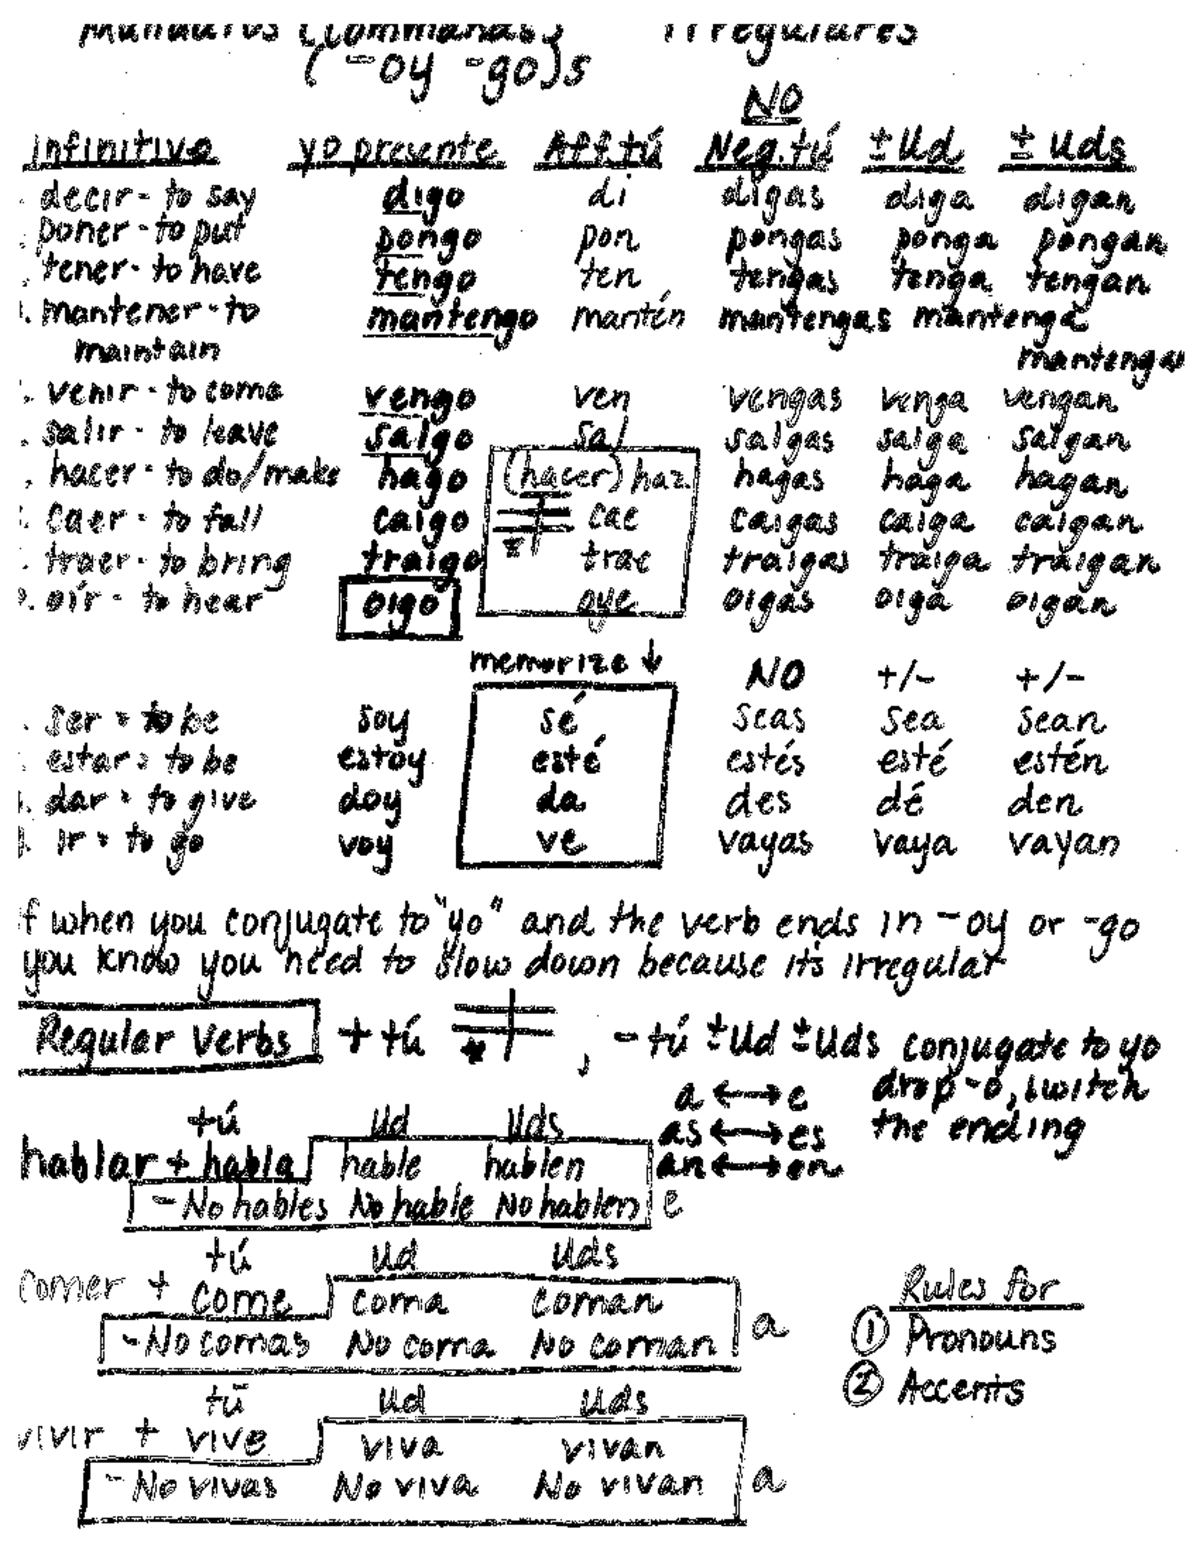 Mandatos (Commands) Irregulares
(-oy -go)s
NO
infinitivo yo presente Aff.tú Neg.tú ±Ud ±Uds
decir - to say digo di digas diga digan
poner - to put pongo pon pongas ponga pongan
tener - to have tengo ten tengas tenga tengan
mantener - to mantengo mantén mantengas mantenga
maintain mantengan
venir - to come vengo ven vengas venga vengan
salir - to leave salgo sal salgas salga salgan
hacer - to do/make hago (hacer) haz hagas haga hagan
caer - to fall caigo cae caigas caiga caigan
traer - to bring traigo trae traigas traiga traigan
oír - to hear oigo oye oigas oiga oigan
memorize ↓ NO +/- +/-
ser = to be soy sé seas sea sean
estar = to be estoy esté estés esté estén
dar = to give doy da des dé den
Ir = to go voy ve vayas vaya vayan
f when you conjugate to "yo" and the verb ends in -oy or -go
you know you need to slow down because its irregular
Regular Verbs + tú , - tú ±Ud ±Uds conjugate to yo
a ↔ e drop -o, switch
as ↔ es the ending
an ↔ en
+tú Ud Uds
hablar + habla hable hablen
- No hables No hable No hablen e
+tú Ud Uds
comer + come coma coman
- No comas No coma No coman a
Rules for
① Pronouns
② Accents
tú Ud Uds
vivir + vive viva vivan
- No vivas No viva No vivan a